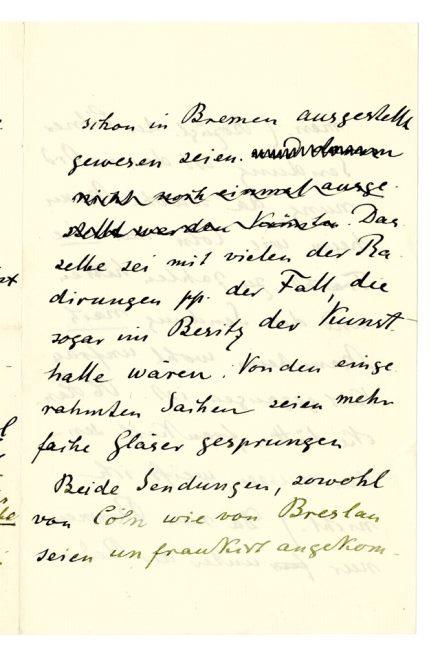 schon in Bremen ausgestellt
gewesen seien. und dann
nicht noch einmal ausge-
stellt werden könnten. Das
selbe sei mit vielen der Ra-
dirungen pp. der Fall, die
sogar im Besitz der Kunst-
halle wären. Von den einge
rahmten Sachen seien mehr
fache Gläser gesprungen
Beide Sendungen, sowohl
von Cöln wie von Breslau
seien unfrankirt angekom-